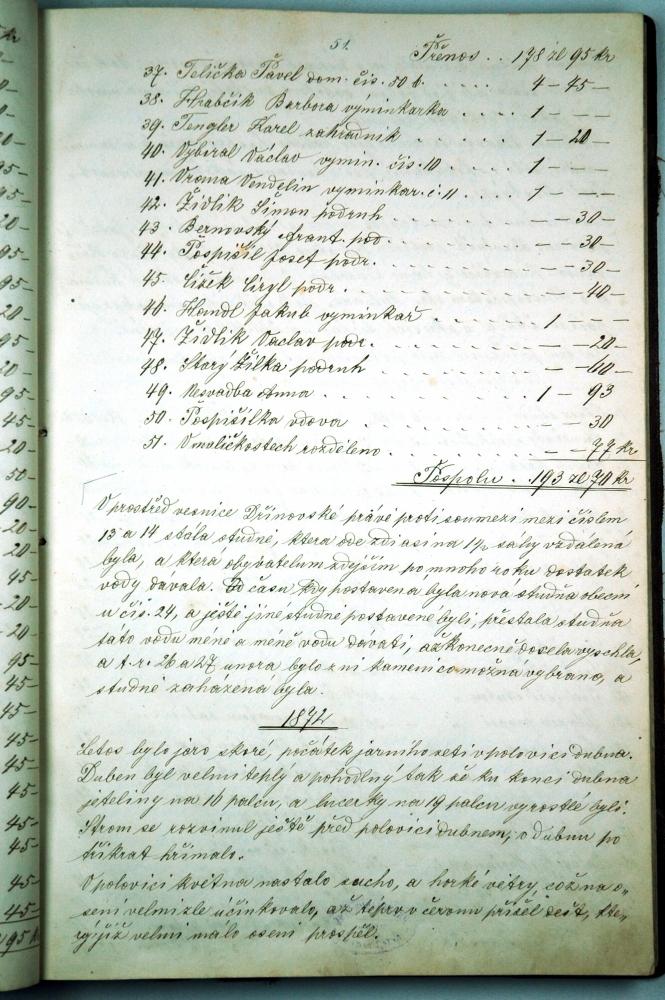 51.
Přenos . . 178 zl 95 kr
37. Telička Pavel dom. čís. 50 b. . . . . . 4 – 45 –
38. Hrabčik Barbora výminkarka . . . . 1 – – –
39. Tengler Karel zahradnik . . . . . . 1 – 20 –
40. Vybiral Václav vymin. čís. 10 . . . . 1 – – –
41. Vrana Vendelin vyminkar. č. 11 . . . . 1 – – –
42. Židlik Simon podruh . . . . . . . – – 30 –
43. Bernovský Frant. pod. . . . . . . – – 30 –
44. Pospišil Josef podr. . . . . . . . – – 30 –
45. Cižek Ciryl podr. . . . . . . . . – – 40 –
46. Handl Jakub vyminkař . . . . . . 1 – – –
47. Židlik Vaclav podr. . . . . . . . – – 20 –
48. Starý Žilka podruh . . . . . . . – – 40 –
49. Nesvadba Anna . . . . . . . . 1 – 93
50. Pospišilka vdova . . . . . . . – – 30
51. V maličkostech rozděleno . . . . . – – 77 kr
Pospolu . . 193 zl 70 kr
V prostřed vesnice Dřinovské právě proti soumezi mezi číslem
13 a 14 stála studně, ktera ode zdi asi na 1½ sahy vzdálená
byla, a která obyvatelum zdejším po mnoho roku dostatek
vody davala. Od času kdy postavena byla nova studňa obecni
u čís. 24, a ještě jiné studně postavené byli, přestala studňa
tato vodu méně a méně vodu dávati, až konečně docela vyschla,
a t. r. 26 a 27 unora bylo z ni kameni co možná vybrano, a
studně zaházená byla.
1872
Letos bylo jaro skoré, počátek jarniho seti v polovici dubna.
Duben byl velmi teply a pohodlný tak že ku konci dubna
jeteliny na 16 palcu, a lucerky na 19 palcu vyrostlé byli.
Strom se rozvinul ještě před polovici dubnem, v dubnu po
třikrat hřimalo.
V polovici května nastalo sucho, a horké větry, což na o„
seni velmi zle učinkovalo, až teprv v červnu přišel dešť, kte„
rý již velmi málo oseni prospěl.